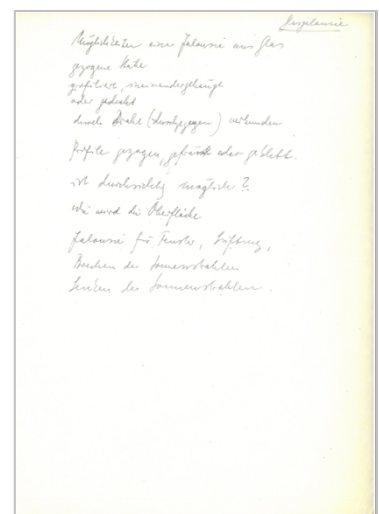 Glasjalousie
Möglichkeiten einer Jalousie aus Glas
gezogene Stäbe
profiliert, ineinandergehängt
oder gedreht
durch Draht (durchgezogen) verbunden
Profile gezogen, gepreßt oder geklebt.
ist durchsichtig möglich?
wie wird die Oberfläche
Jalousie für Fenster, Lüftung,
Brechen der Sonnenstrahlen
Lenken der Sonnenstrahlen.